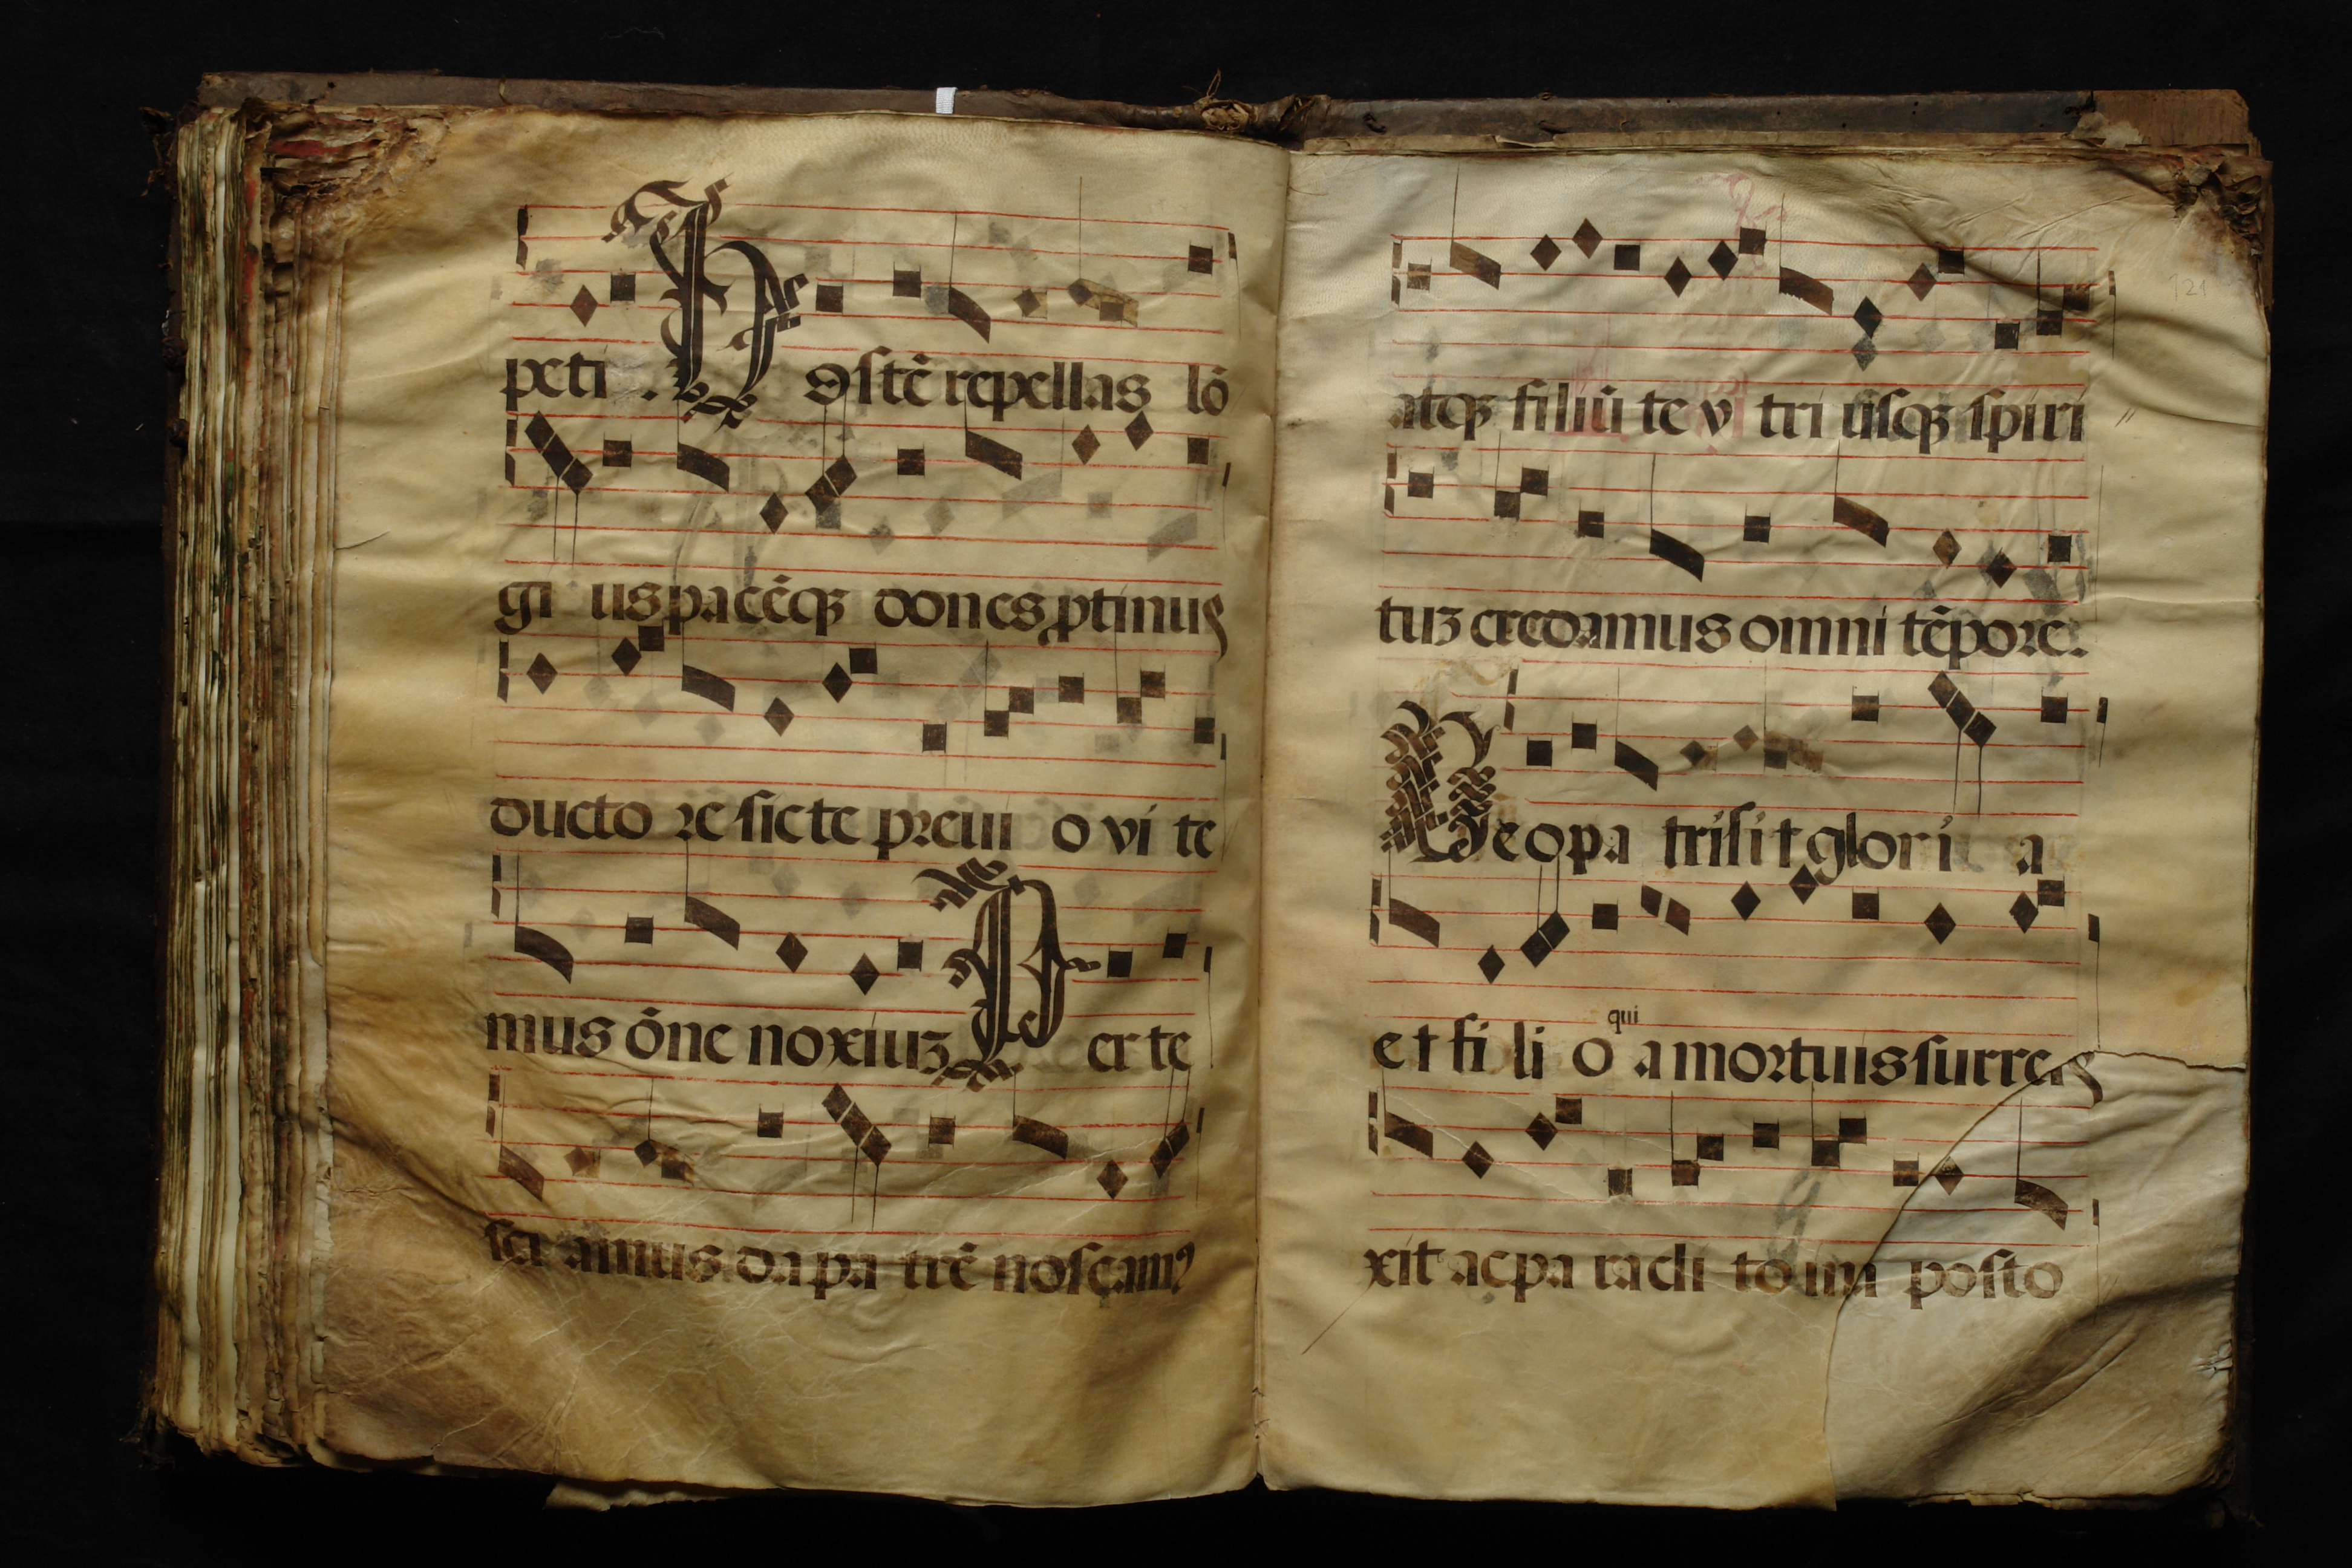 peti . Hostē repellas lō
gi us pacēqꝫ dones ptinus
ducto re sic te preui o vi te
mus ōne noxiuꝫ Per te
sci amus da pa trē noscam9
121
atqꝫ filiū te v tri usqꝫ spiri
tuꝫ credamus omni tēpore.
Deo pa tri sit glori a
qui
et fi li o a mortuis surre
xit ac pa racli to im posto